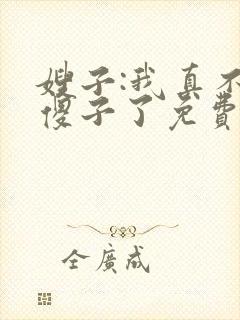 嫂子:我真不
傻子了免费
全广成